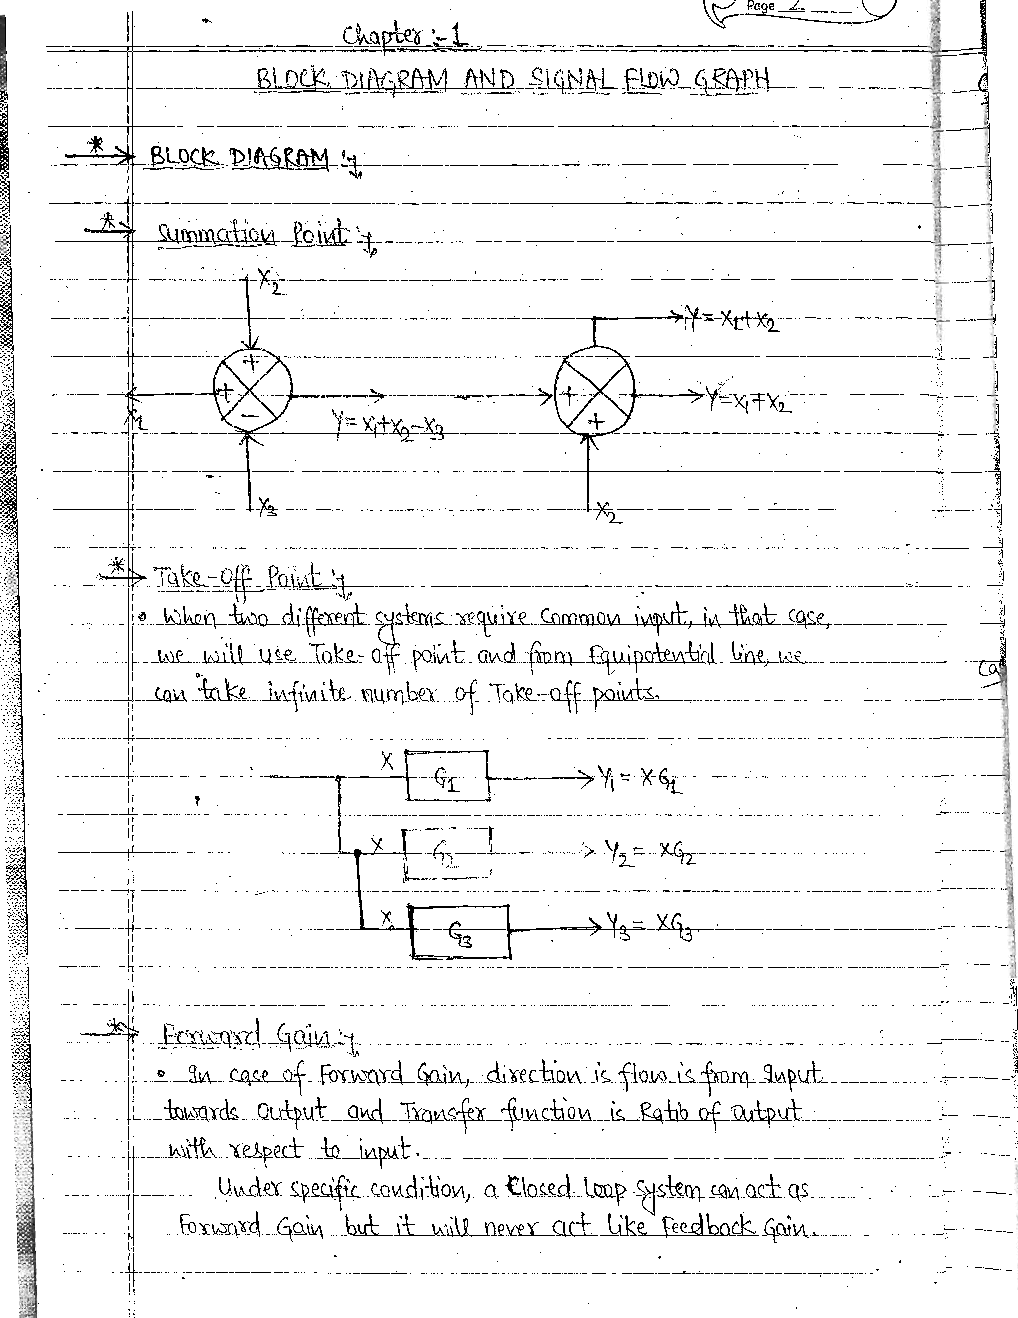 Page 2
Chapter :- 1
BLOCK DIAGRAM AND SIGNAL FLOW GRAPH
* BLOCK DIAGRAM :-
* Summation Point :-
X2
Y = X1+X2
+
+
-
Y = X1+X2-X3
+
+
Y = X1+X2
X3
X2
* Take-off Point :-
• When two different systems require Common input, in that case,
we will use Take-off point and from Equipotential line, we
can take infinite number of Take-off points.
X G1 Y1 = XG1
X G2 Y2 = XG2
X G3 Y3 = XG3
* Forward Gain :-
• In case of Forward Gain, direction is flow is from Input
towards Output and Transfer function is Ratio of output
with respect to input.
Under specific condition, a Closed Loop System can act as
Forward Gain but it will never act like Feedback Gain.